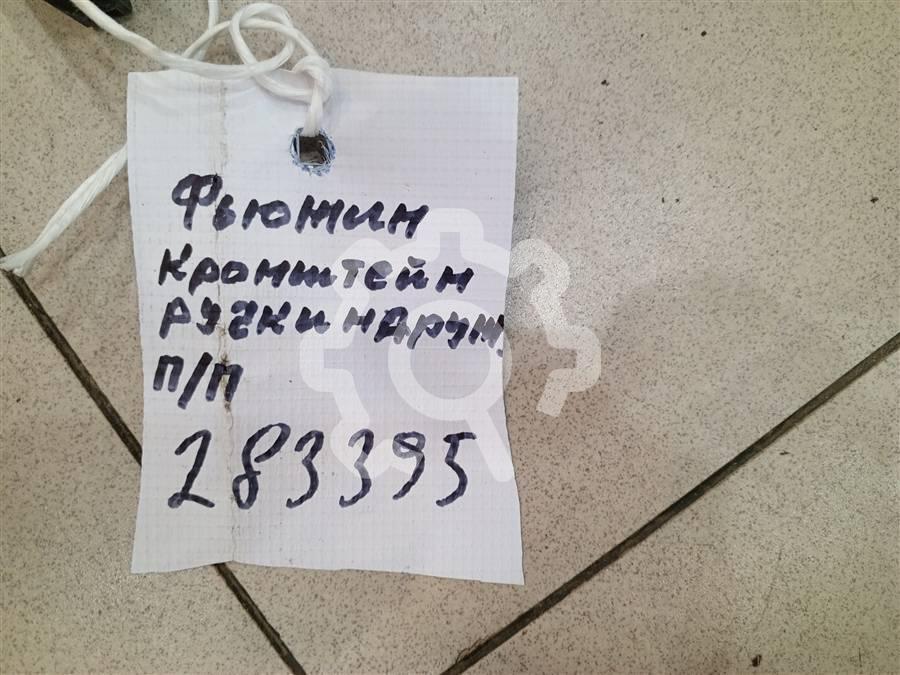 Фьюжин
кронштейн
ручки наруж,
п/п
283395